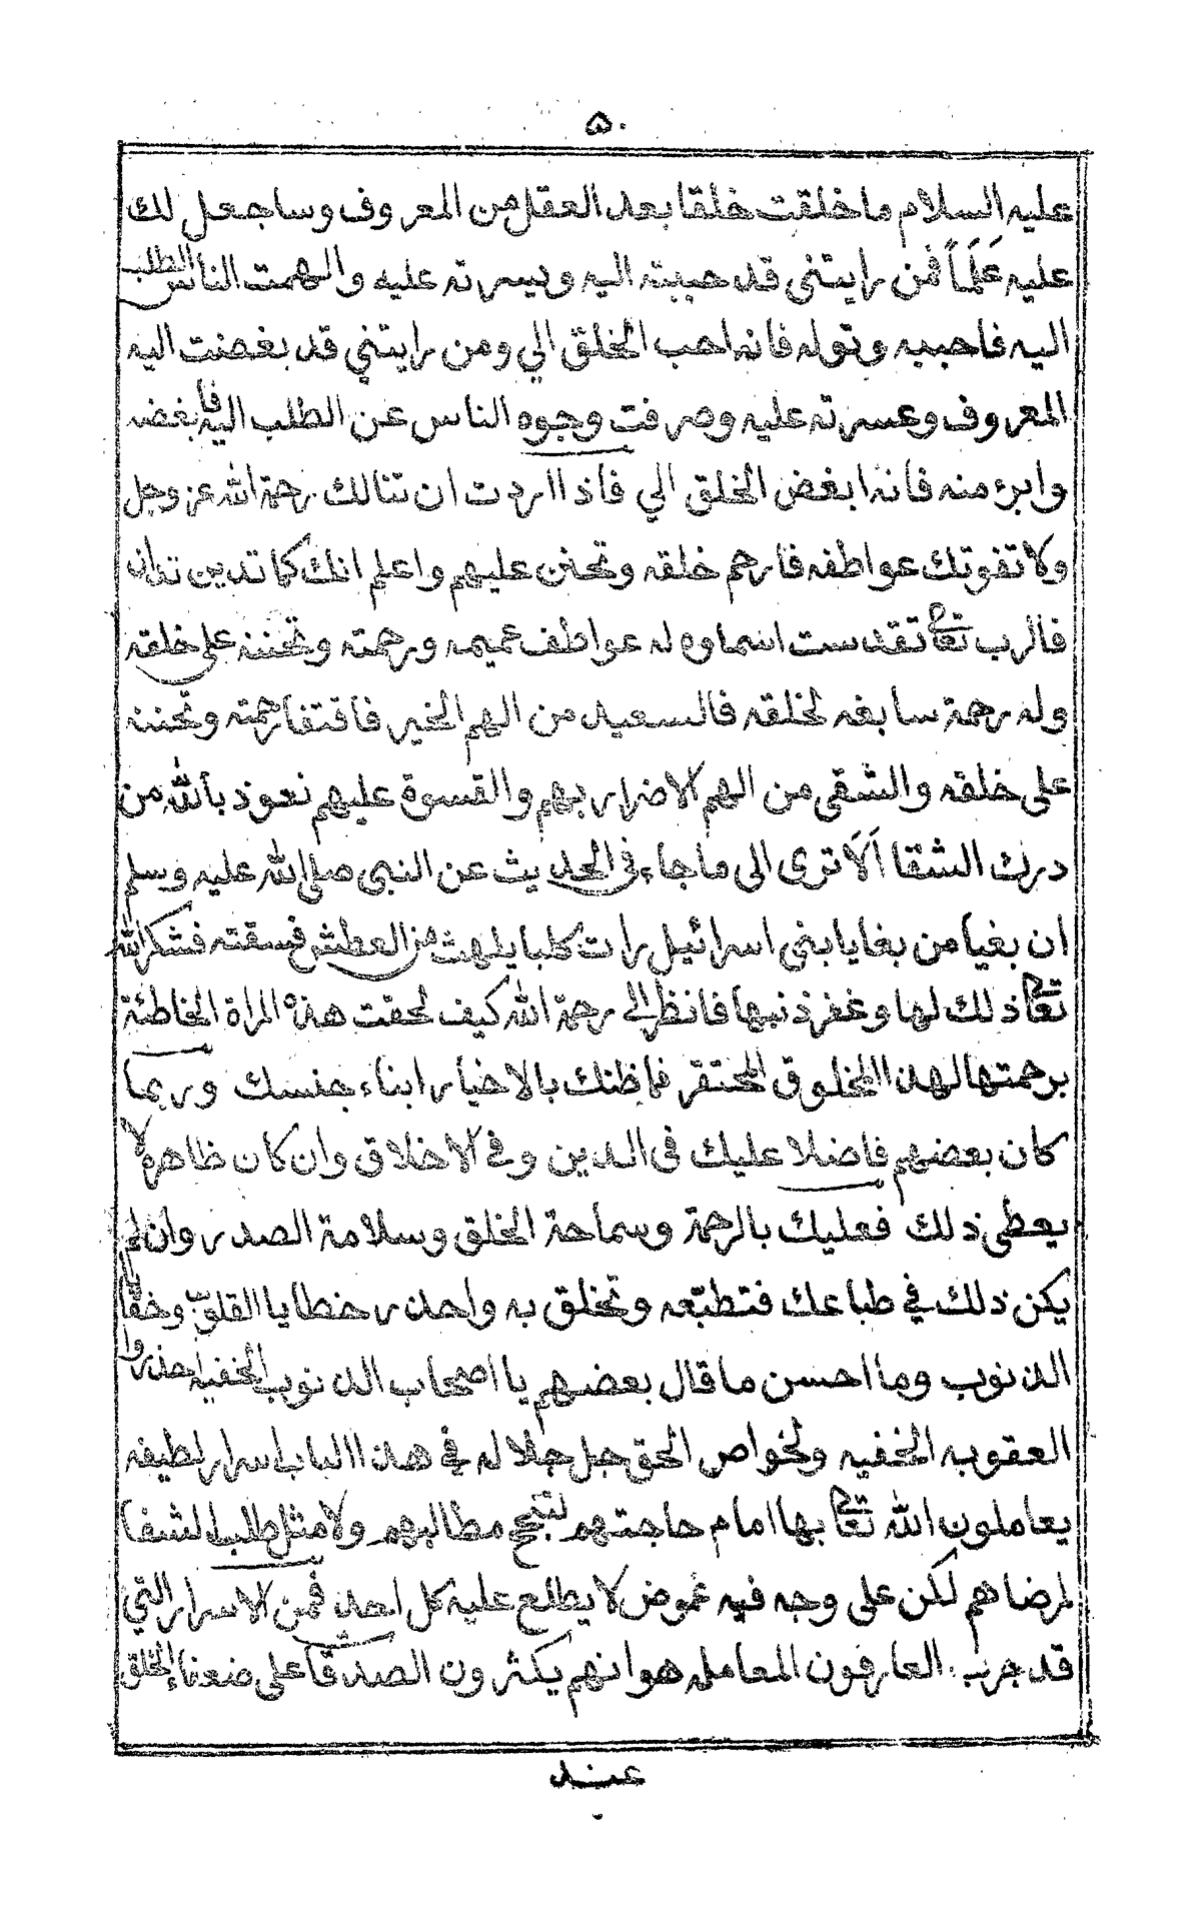 ٥٠
عليه السلام ما خلقت خلقا بعد العقل من المعروف وساجعل لك
عليه عَلَماً فمن رايتني قد حببته اليه ويسرته عليه والهمت الناس الطلب
اليه فاحببه وتوله فانه احب الخلق الي ومن رايتني قد بغضت اليه
المعروف وعسرته عليه وصرفت وجوه الناس عن الطلب اليه فابغضه
وابرء منه فانه ابغض الخلق الي فاذا اردت ان تنالك رحمة الله عز وجل
ولا تفوتك عواطفه فارحم خلقه وتحنن عليهم واعلم انك كما تدين تدان
فالرب تعالى تقدست اسماوه له عواطف عميمه ورحمته وتحننه على خلقه
وله رحمة سابغه لخلقه فالسعيد من الهم الخير فاقتفا رحمته وتحننه
على خلقه والشقى من الهم الاضرار بهم والقسوة عليهم نعوذ بالله من
درك الشقا اَلَا ترى الى ما جاء في الحديث عن النبي صلى الله عليه وسلم
ان بغيا من بغايا بنى اسرائيل رات كلبا يلهث من العطش فسقته فشكر الله
تعالى ذلك لها وغفر ذنبها فانظر الى رحمة الله كيف لحقت هذه المراة الخاطئة
برحمتها لهذا المخلوق المحتقر فما ظنك بالاخيار ابناء جنسك وربما
كان بعضهم فاضلا عليك فى الدين وفي الاخلاق وان كان ظاهره لا
يعطى ذلك فعليك بالرحمة وسماحة الخلق وسلامة الصدر وان لم
يكن ذلك في طباعك فتطبّعه وتخلق به واحذر خطايا القلوب وخفايا
الذنوب وما احسن ما قال بعضهم يا اصحاب الذنوب الخفيه احذروا
العقوبه الخفيه ولخواص الحق جل جلاله في هذا الباب اسرار لطيفه
يعاملون الله تعالى بها امام حاجتهم لتنجح مطالبهم ولا مثل طلب الشفا
لمرضاهم لكن على وجه فيه غموض لا يطلع عليه كل احد فمن الاسرار التي
قد جرب العارفون المعامله هو انهم يكثرون الصدقا على ضعفاء الخلق
عند